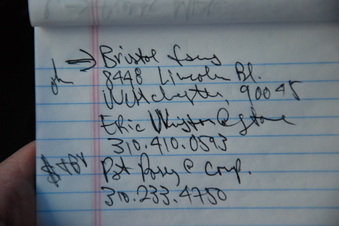 Bristol Farms
8448 Lincoln Bl.
Westchester, 90045
Eric Winston @ store
310.410.0593
Pat Posey @ Corp.
310.233.4750